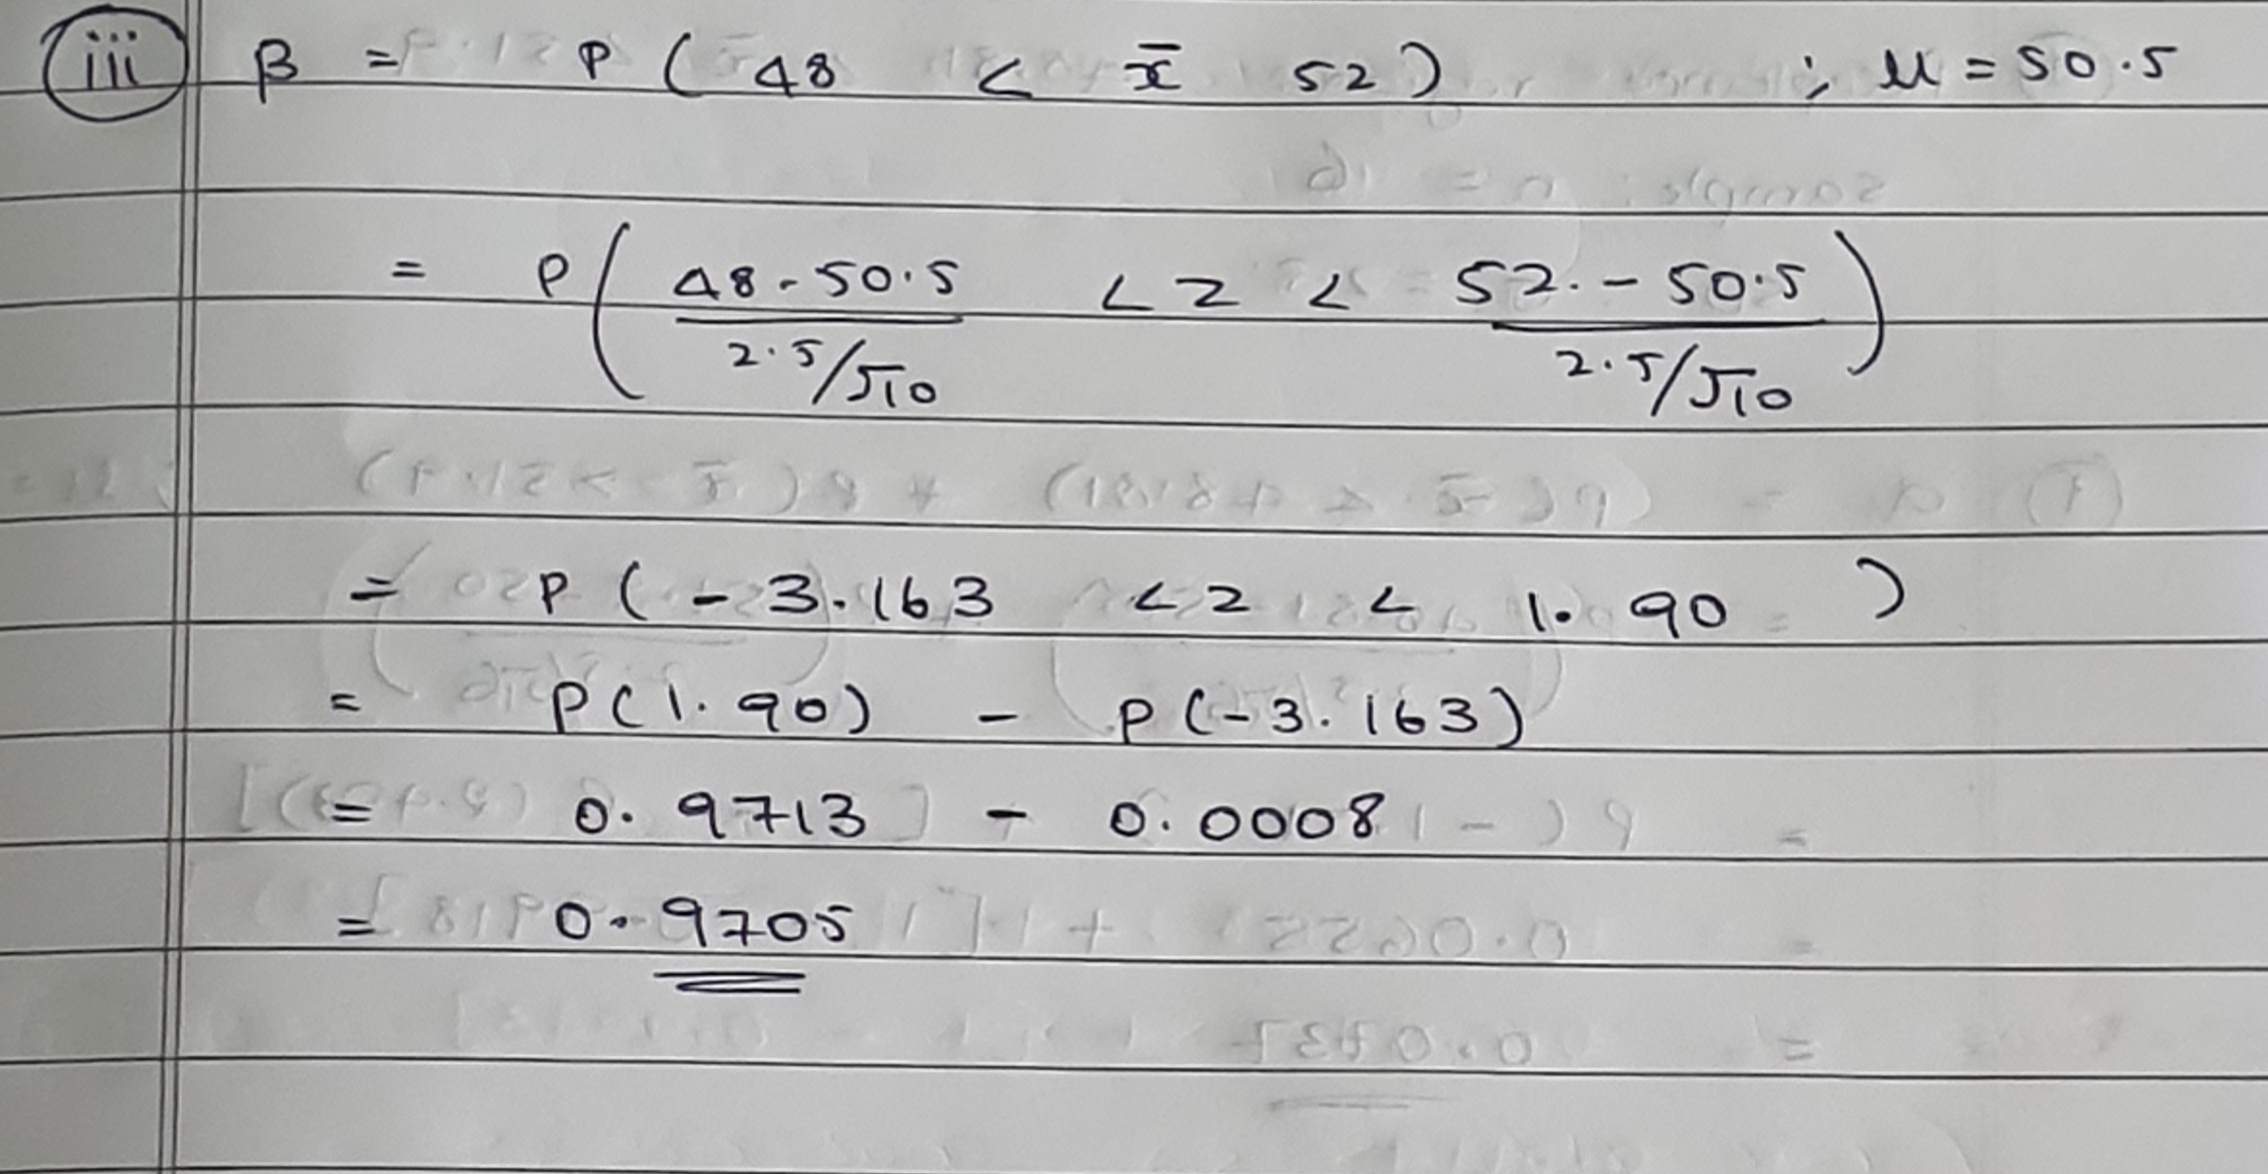 iii β = P ( 48 < x̄ 52 ) ; μ = 50.5
= P ( 48 - 50.5 / 2.5/√10 < z < 52. - 50.5 / 2.5/√10 )
= P ( - 3.163 < z < 1.90 )
= P(1.90) - P(-3.163)
= 0.9713 - 0.0008
= 0.9705